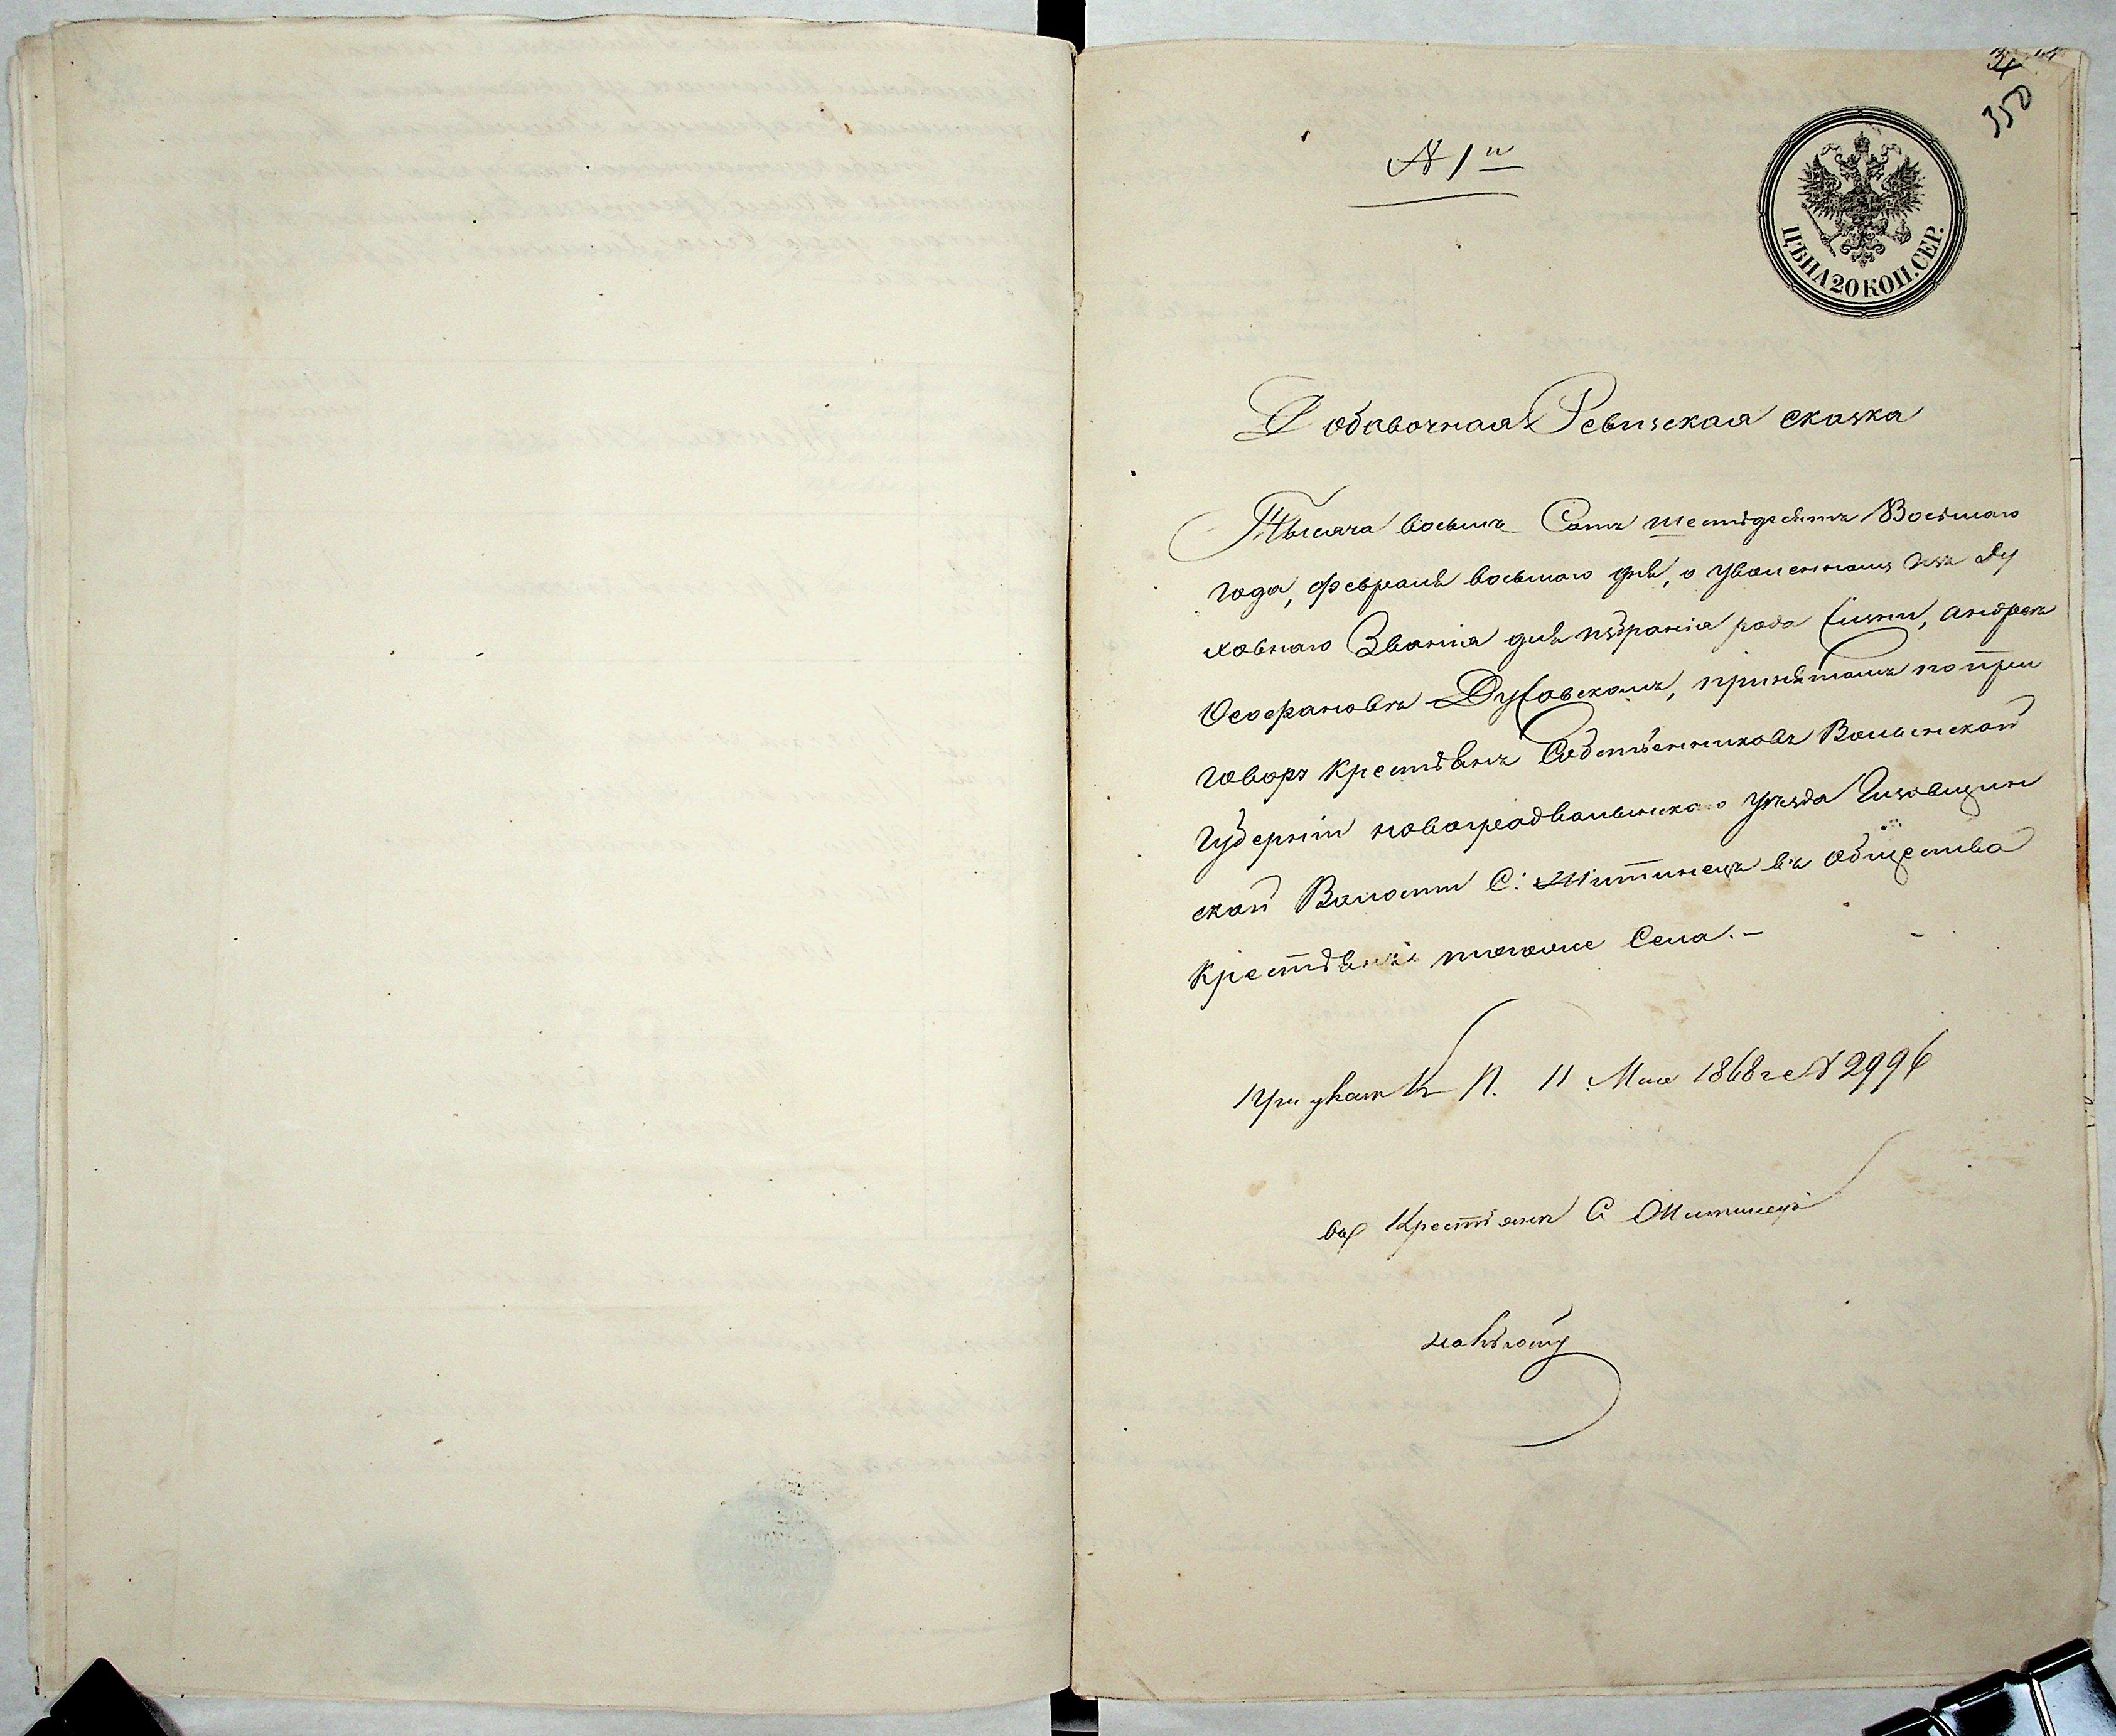 350
№ 1й
ЦѢНА 20 КОП. СЕР.
Добавочная Ревизская сказка
Тысяча восемь Сотъ шестьдесятъ Восьмаго
года, февраля восьмаго дня, о уволенномъ изъ ду
ховнаго Званія для избранія рода жизни, андреѣ
Феофановѣ Дубовскомъ, принятомъ по при
говору крестьянъ Собственниковъ Волынской
Губерніи новоградволынскаго уѣзда
ской Волости С: Житинецъ въ общество
крестьянъ тогоже Села.-
При указѣ К П. 11 Мая 1868 г № 2996
въ Крестьяне С Житинецъ